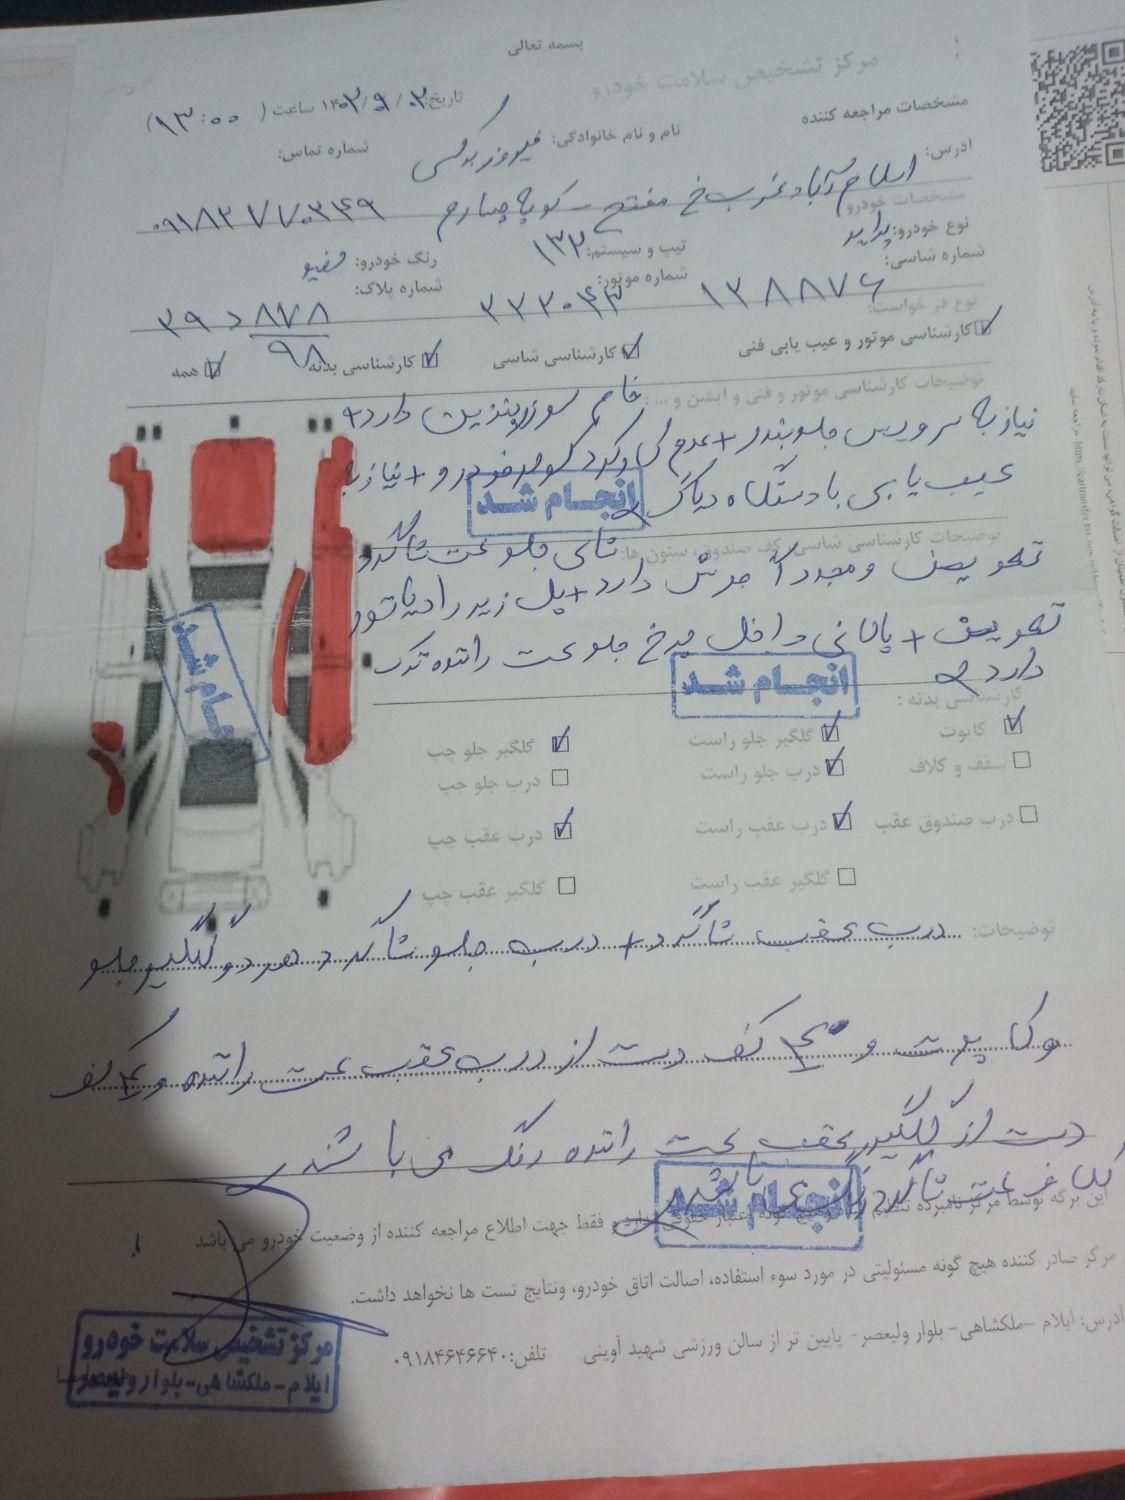 بسمه تعالی
مرکز تشخیص سلامت خودرو
تاریخ: ۱۴۰۲/۹/۰۲ ساعت (۱۳:۰۰)
مشخصات مراجعه کننده
نام و نام خانوادگی: فیروز
شماره تماس:
ادرس: اسلام آباد غرب خ مفتح - کوچه چهارم ۰۹۱۸۳۷۷۰۳۴۹
مشخصات خودرو
نوع خودرو: پراید تیپ و سیستم: ۱۳۲ رنگ خودرو: سفید
شماره شاسی: شماره موتور: شماره پلاک:
۱۳۸۸۷۶ ۳۹ د ۸۷۸
۹۸
نوع در خواست:
کارشناسی موتور و عیب یابی فنی کارشناسی شاسی کارشناسی بدنه همه
توضیحات کارشناسی موتور و فنی و ایشن و ... : خام سوز بنزین دارد+
نیاز به سرویس جلوبندی + عدم کارکرد کولر خودرو + نیاز به
عیب یابی با دستگاه دیاگ
انجام شد
توضیحات کارشناسی شاسی، کف صندوق، ستون ها: سمت شاگرد
تعویض و مجدداً جوش دارد + پل زیر رادیاتور
تعویض + داخل چرخ جلو سمت راننده ترک
دارد
انجام شد
کارشناسی بدنه :
کاپوت گلگیر جلو راست گلگیر جلو چپ
سقف و کلاف درب جلو راست درب جلو چپ
درب صندوق عقب درب عقب راست درب عقب چپ
گلگیر عقب راست گلگیر عقب چپ
توضیحات: درب عقب شاگرد + درب جلو شاگرد هر دو گلگیر جلو
و کاپوت و کف دست از درب عقب سمت راننده و کف
دست از گلگیر عقب سمت راننده رنگ می باشند
سمت شاگرد
انجام شد
این برگه توسط مرکز نامبرده تنظیم فقط جهت اطلاع مراجعه کننده از وضعیت خودرو می باشد
مرکز صادر کننده هیچ گونه مسئولیتی در مورد سوء استفاده، اصالت اتاق خودرو، ونتایج تست ها نخواهد داشت.
آدرس: ایلام -ملکشاهی- بلوار ولیعصر- پایین تر از سالن ورزشی شهید آوینی تلفن: ۰۹۱۸۴۶۴۶۶۴۰
مرکز تشخیص سلامت خودرو
ایلام-ملکشاهی-بلوار ولیعصر